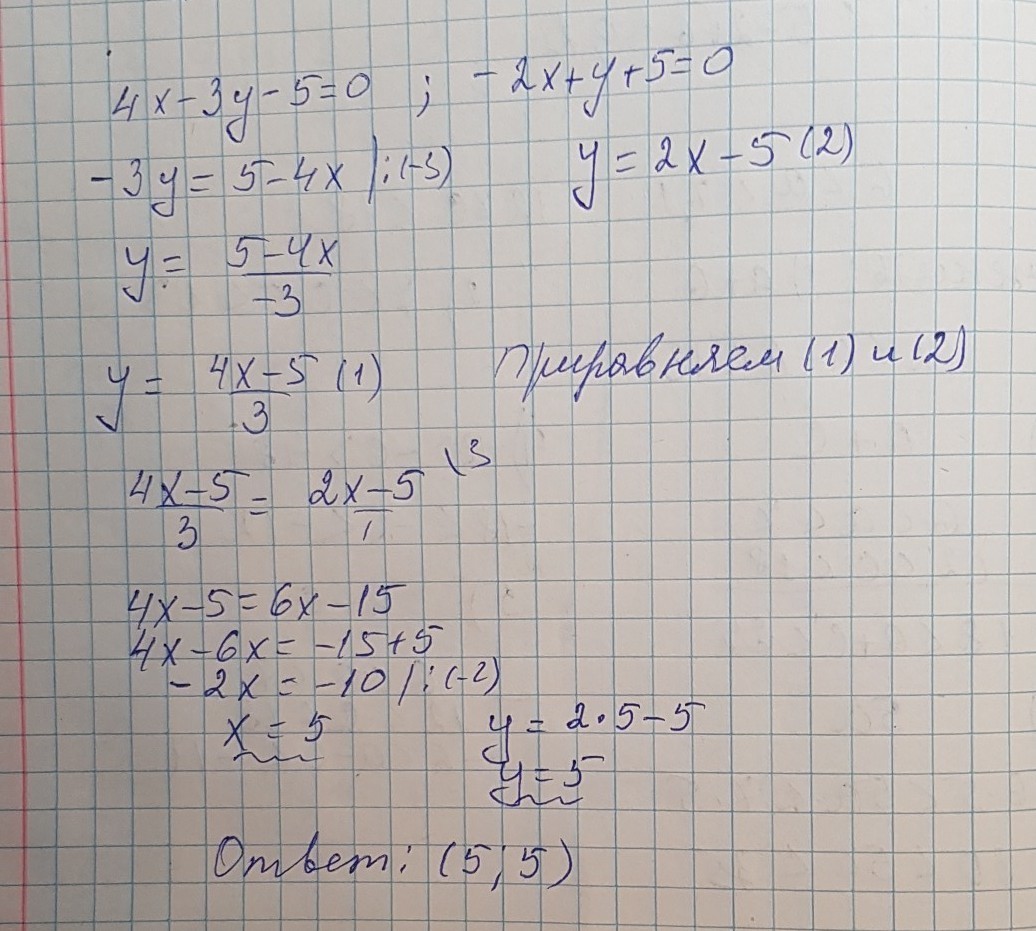 4x-3y-5=0 ; -2x+y+5=0
-3y=5-4x |:(-3)
y=2x-5 (2)
y= 5-4x / -3
y= 4x-5 / 3 (1)
Приравняем (1) и (2)
4x-5 / 3 = 2x-5 / 1 \3
4x-5=6x-15
4x-6x=-15+5
-2x=-10 |:(-2)
x=5
y=2·5-5
y=5
Ответ: (5; 5)